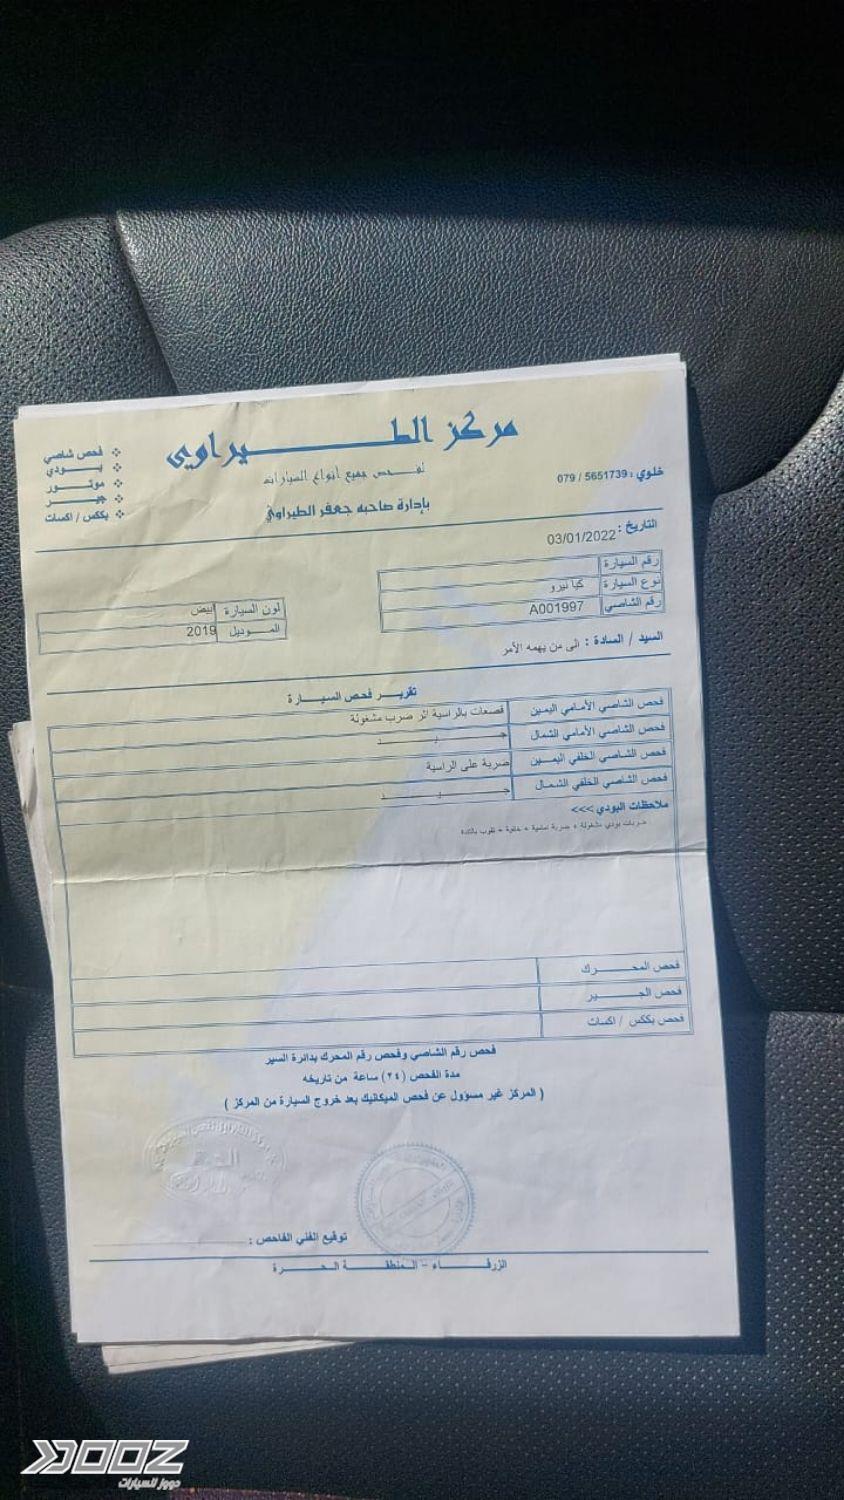 مركز الطيراوي
لفحص جميع أنواع السيارات
بإدارة صاحبه جعفر الطيراوي
خلوي : 5651739 / 079
فحص شاصي
بودي
موتور
جير
بككس / اكسات
التاريخ : 03/01/2022
رقم السيارة
نوع السيارة كيا نيرو
رقم الشاصي A001997
لون السيارة ابيض
الموديل 2019
السيد / السادة : الى من يهمه الأمر
تقرير فحص السيارة
فحص الشاصي الأمامي اليمين قصعات بالراسية اثر ضرب مشغولة
فحص الشاصي الأمامي الشمال جيد
فحص الشاصي الخلفي اليمين ضربة على الراسية
فحص الشاصي الخلفي الشمال جيد
ملاحظات البودي >>>
ضربات بودي مشغولة + ضربة امامية + خلفية + ثقوب
فحص المحرك
فحص الجير
فحص بككس / اكسات
فحص رقم الشاصي وفحص رقم المحرك بدائرة السير
مدة الفحص (٢٤) ساعة من تاريخه
( المركز غير مسؤول عن فحص الميكانيك بعد خروج السيارة من المركز )
توقيع الفني الفاحص :
الزرقاء - المنطقة الحرة
DOOZ
دووز للسيارات